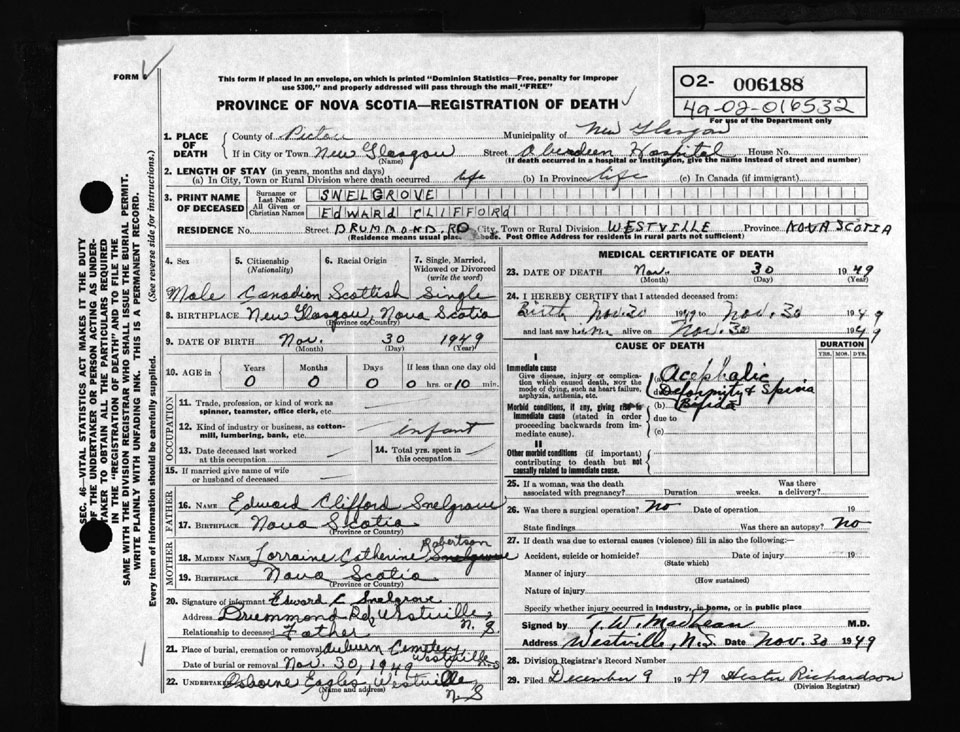 FORM 6
This form if placed in an envelope, on which is printed "Dominion Statistics—Free, penalty for improper
use $300," and properly addressed will pass through the mail "FREE"
PROVINCE OF NOVA SCOTIA—REGISTRATION OF DEATH
02- 006188
49-02-016532
For use of the Department only
1. PLACE OF DEATH
County of Pictou Municipality of New Glasgow
If in City or Town New Glasgow Street Aberdeen Hospital House No.
(Name) (If death occurred in a hospital or institution, give the name instead of street and number)
2. LENGTH OF STAY (in years, months and days)
(a) In City, Town or Rural Division where death occurred life (b) In Province life (c) In Canada (if immigrant)
3. PRINT NAME OF DECEASED
Surname or Last Name SNELGROVE
All Given or Christian Names EDWARD CLIFFORD
RESIDENCE No. Street DRUMMOND RD City, Town or Rural Division WESTVILLE Province NOVA SCOTIA
(Residence means usual place of abode. Post Office Address for residents in rural parts not sufficient)
4. Sex
5. Citizenship (Nationality)
6. Racial Origin
7. Single, Married, Widowed or Divorced (write the word)
Male Canadian Scottish Single
8. BIRTHPLACE New Glasgow, Nova Scotia
(Province or Country)
9. DATE OF BIRTH Nov. 30 1949
(Month) (Day) (Year)
10. AGE in Years Months Days If less than one day old
0 0 0 0 hrs. or 10 min.
OCCUPATION
11. Trade, profession, or kind of work as spinner, teamster, office clerk, etc.
12. Kind of industry or business, as cotton-mill, lumbering, bank, etc. infant
13. Date deceased last worked at this occupation
14. Total yrs. spent in this occupation
15. If married give name of wife or husband of deceased
FATHER
16. NAME Edward Clifford Snelgrove
17. BIRTHPLACE Nova Scotia
(Province or Country)
MOTHER
Robertson
18. MAIDEN NAME Lorraine Catherine Snelgrove
19. BIRTHPLACE Nova Scotia
(Province or Country)
20. Signature of informant Edward C Snelgrove
Address Drummond Rd, Westville, N. S.
Relationship to deceased Father
21. Place of burial, cremation or removal Auburn Cemetery Westville N.S
Date of burial or removal Nov. 30, 1949
22. UNDERTAKER Osborne Eagles, Westville N. S
(Name and address)
MEDICAL CERTIFICATE OF DEATH
23. DATE OF DEATH Nov. 30 1949
(Month) (Day) (Year)
24. I HEREBY CERTIFY that I attended deceased from:
Birth Nov. 30 1949 to Nov. 30 1949
and last saw him alive on Nov. 30 1949
CAUSE OF DEATH
DURATION
YRS. MOS. DYS.
I
Immediate cause
Give disease, injury or complication which caused death, NOT the mode of dying, such as heart failure, asphyxia, asthenia, etc.
(a) Acephalic
due to Deformity & Spina
Morbid conditions, if any, giving rise to immediate cause (stated in order proceeding backwards from immediate cause).
(b) Bifida
due to
(c)
II
Other morbid conditions (if important) contributing to death but not causally related to immediate cause.
25. If a woman, was the death associated with pregnancy? Duration weeks. Was there a delivery?
26. Was there a surgical operation? No Date of operation 19
State findings Was there an autopsy? No
27. If death was due to external causes (violence) fill in also the following:—
Accident, suicide or homicide? Date of injury 19
(State which)
Manner of injury
(How sustained)
Nature of injury
Specify whether injury occurred in industry, in home, or in public place
Signed by MacLean M.D.
Address Westville, N.S. Date Nov. 30 1949
28. Division Registrar's Record Number
29. Filed December 9 1949 Hester Richardson
(Division Registrar)
SEC. 46—VITAL STATISTICS ACT MAKES IT THE DUTY
OF THE UNDERTAKER OR PERSON ACTING AS UNDER-
TAKER TO OBTAIN ALL THE PARTICULARS REQUIRED
IN THE "REGISTRATION OF DEATH" AND TO FILE THE
SAME WITH THE DIVISION REGISTRAR WHO SHALL ISSUE THE BURIAL PERMIT.
WRITE PLAINLY WITH UNFADING INK. THIS IS A PERMANENT RECORD.
Every item of information should be carefully supplied. (See reverse side for instructions.)